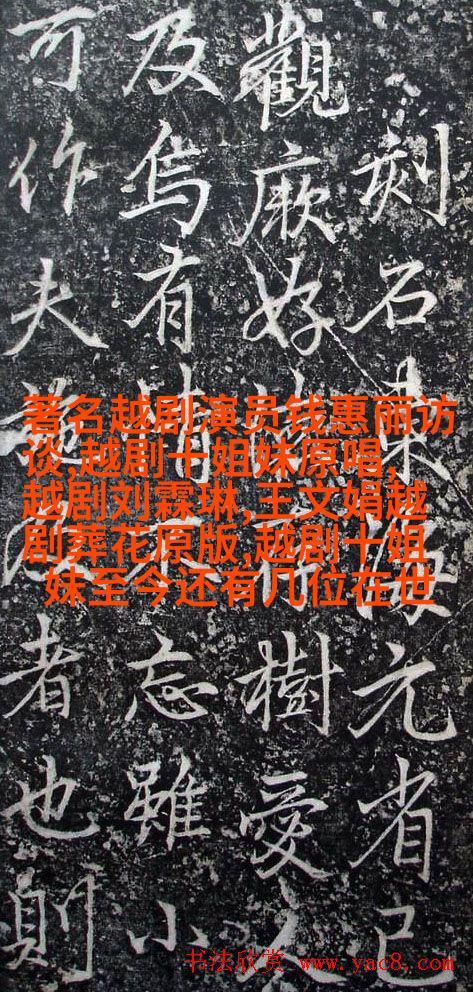 刻石東海元省已
觀厥好樹愛
及烏有忘雖小
可作夫者也則
著名越剧演员钱惠丽访
谈,越剧十姐妹原唱,
越剧刘霖琳,王文娟越
剧葬花原版,越剧十姐
妹至今还有几位在世
书法欣赏 www.yac8.com